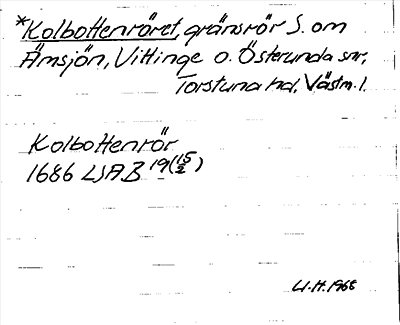 *Kolbottenröret, gränsrör S. om
Ämsjön, Vittinge o. Österunda snr,
Torstuna hd, Västm. l.
Kolbottenrör
1686 LSA B 19 (15/2)
U.H. 1968